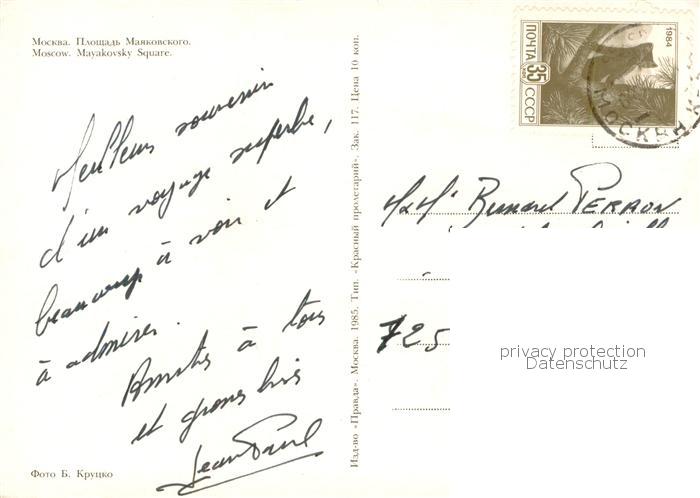 Москва. Площадь Маяковского.
Moscow. Mayakovsky Square.
Meilleurs souvenirs
d'un voyage superbe,
beaucoup à voir et
à admirer.
Amitiés à tous
et grosses bises
Jean Paul
Фото Б. Круцко
Изд-во «Правда». Москва. 1985. Тип. «Красный пролетарий». Зак. 117. Цена 10 коп.
1984
ПОЧТА
35
СССР
МОСКВА
Bernard PERRON
725
privacy protection
Datenschutz